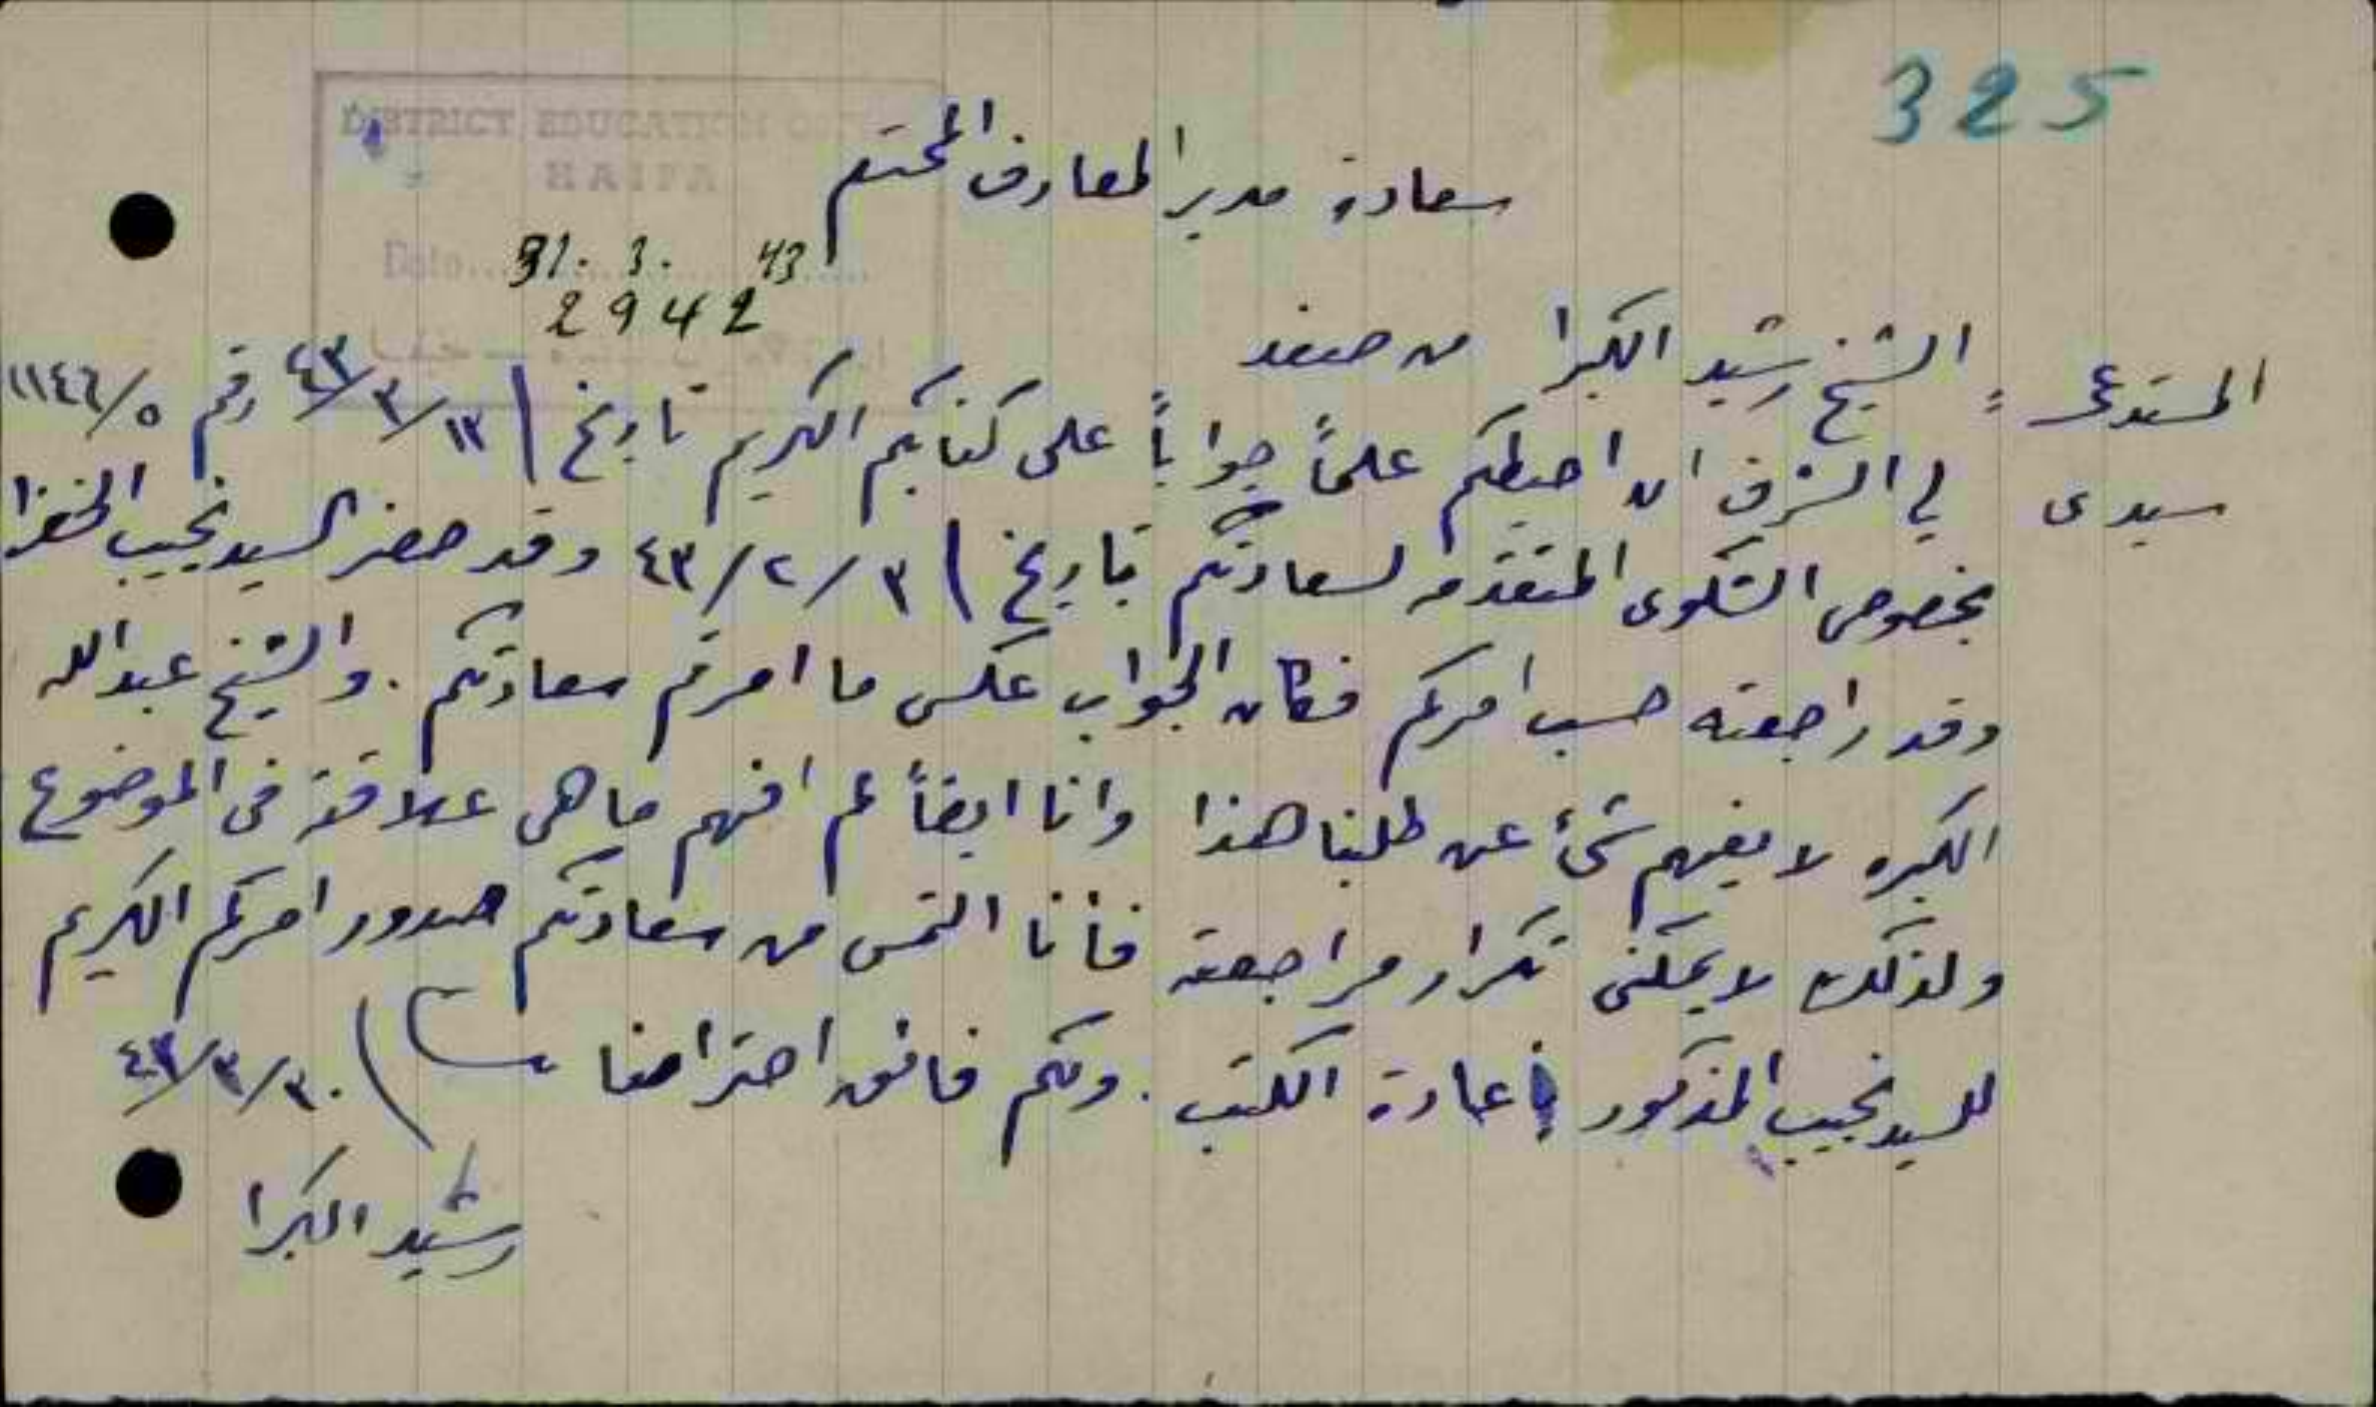 325
DISTRICT EDUCATION
HAIFA
Date 31. 3. 43
2942
سعادة مدير المعارف المحترم
المستدعى : الشيخ رشيد الكبرا من صفد
سيدى لي الشرف ان احيطكم علماً جواباً على كتابكم الكريم تاريخ ١٣/٣/٤٣ رقم ١١٤٦/٥
بخصوص الشكوى المتقدمه لسعادتكم بتاريخ ٣/٢/٤٣ وقد حضر السيد نجيب الخضرا
وقد راجعته حسب امركم فكان الجواب عكس ما امرتم سعادتكم . والشيخ عبد الله
الكبره لا يفهم شئ عن طلبنا هذا وانا ايضاً لم افهم ما هى علاقة فى الموضوع
ولذلك لا يمكنى تكرار مراجعته فأنا التمس من سعادتكم صدور امركم الكريم
للسيد نجيب المذكور اعادة الكتب . ولكم فائق احترامنا ٣٠/٣/٤٣
رشيد الكبرا